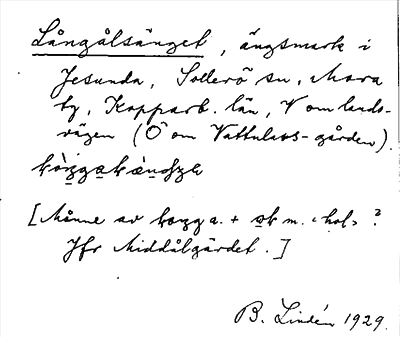 Långålsänget, ängsmark i
Jesunda, Sollerö sn, Mora
tg, Kopparb. län, V om lands-
vägen (Ö om Vattulars-gården).
[Månne av a. + m. ‹hol› ?
Jfr Middålgärdet.]
B. Lindén 1929.